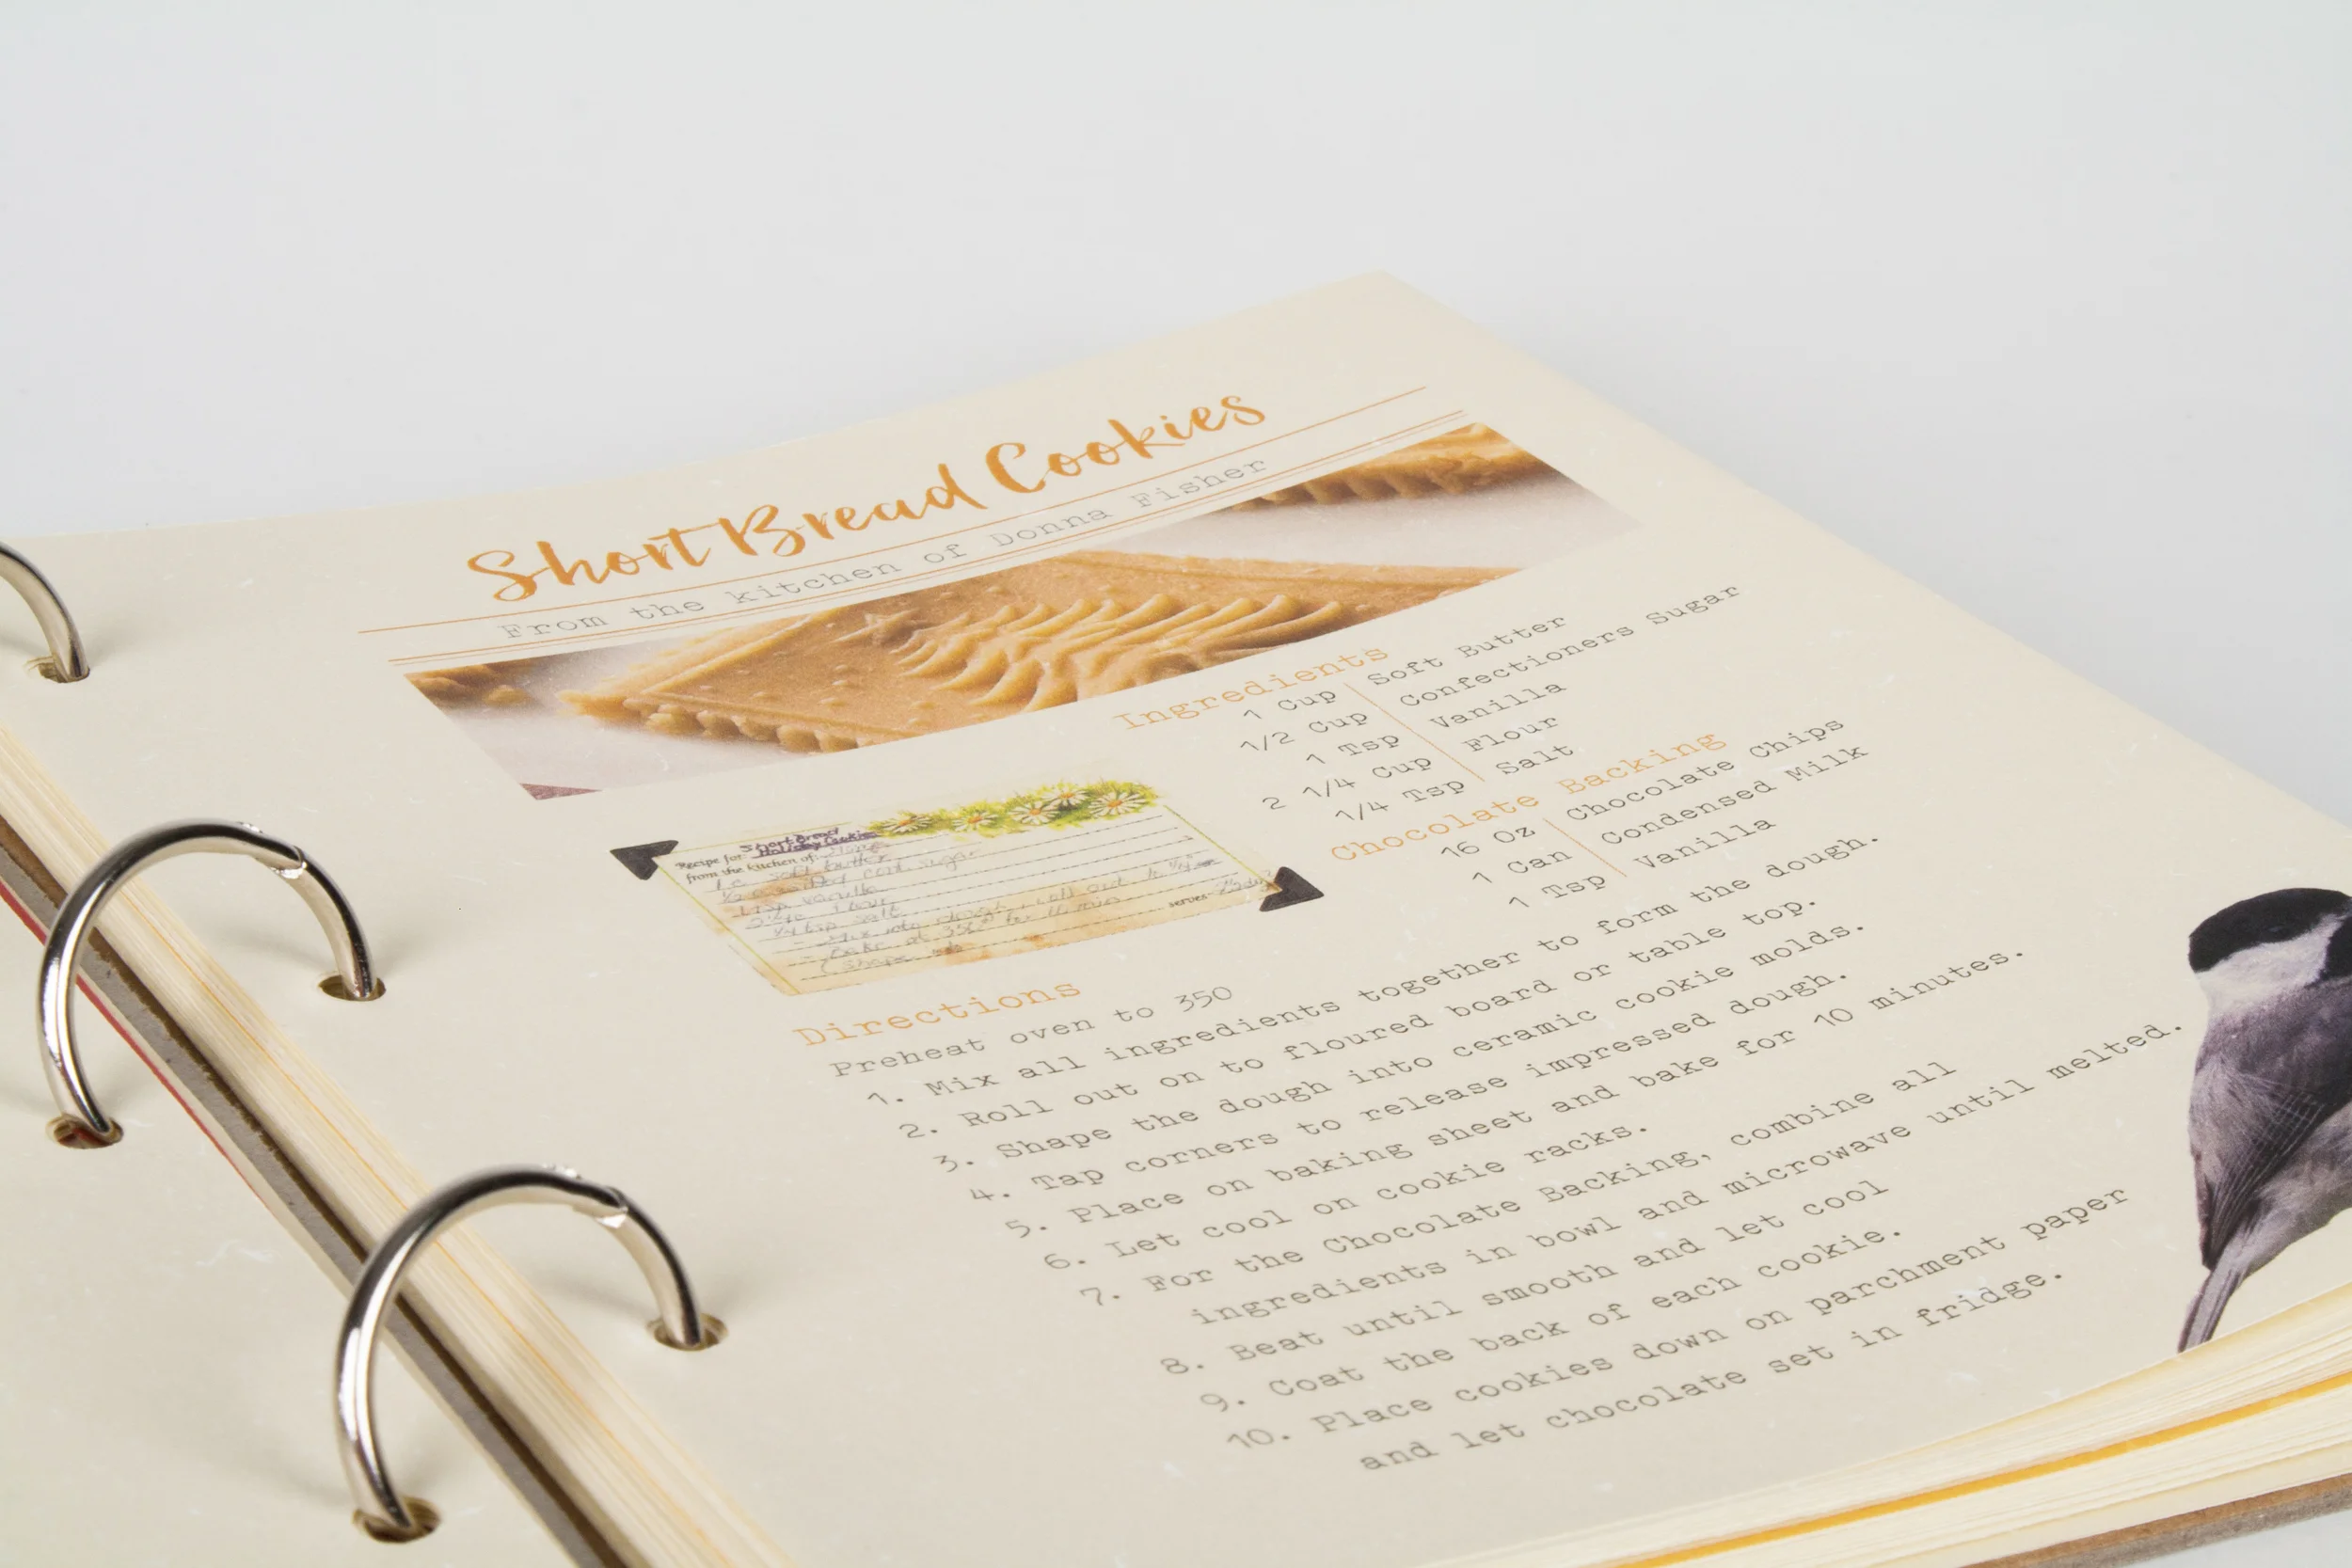 Short Bread Cookies
From the kitchen of Donna Fisher
Ingredients
1 Cup Soft Butter
1/2 Cup Confectioners Sugar
1 Tsp Vanilla
2 1/4 Cup Flour
1/4 Tsp Salt
Chocolate Backing
16 Oz Chocolate Chips
1 Can Condensed Milk
1 Tsp Vanilla
Short Bread
Recipe for: Holiday Cookies
from the kitchen of:
1 c soft butter
1 tsp vanilla
1/4 tsp salt
serves
Directions
Preheat oven to 350
1. Mix all ingredients together to form the dough.
2. Roll out on to floured board or table top.
3. Shape the dough into ceramic cookie molds.
4. Tap corners to release impressed dough.
5. Place on baking sheet and bake for 10 minutes.
6. Let cool on cookie racks.
7. For the Chocolate Backing, combine all
ingredients in bowl and microwave until melted.
8. Beat until smooth and let cool
9. Coat the back of each cookie.
10. Place cookies down on parchment paper
and let chocolate set in fridge.